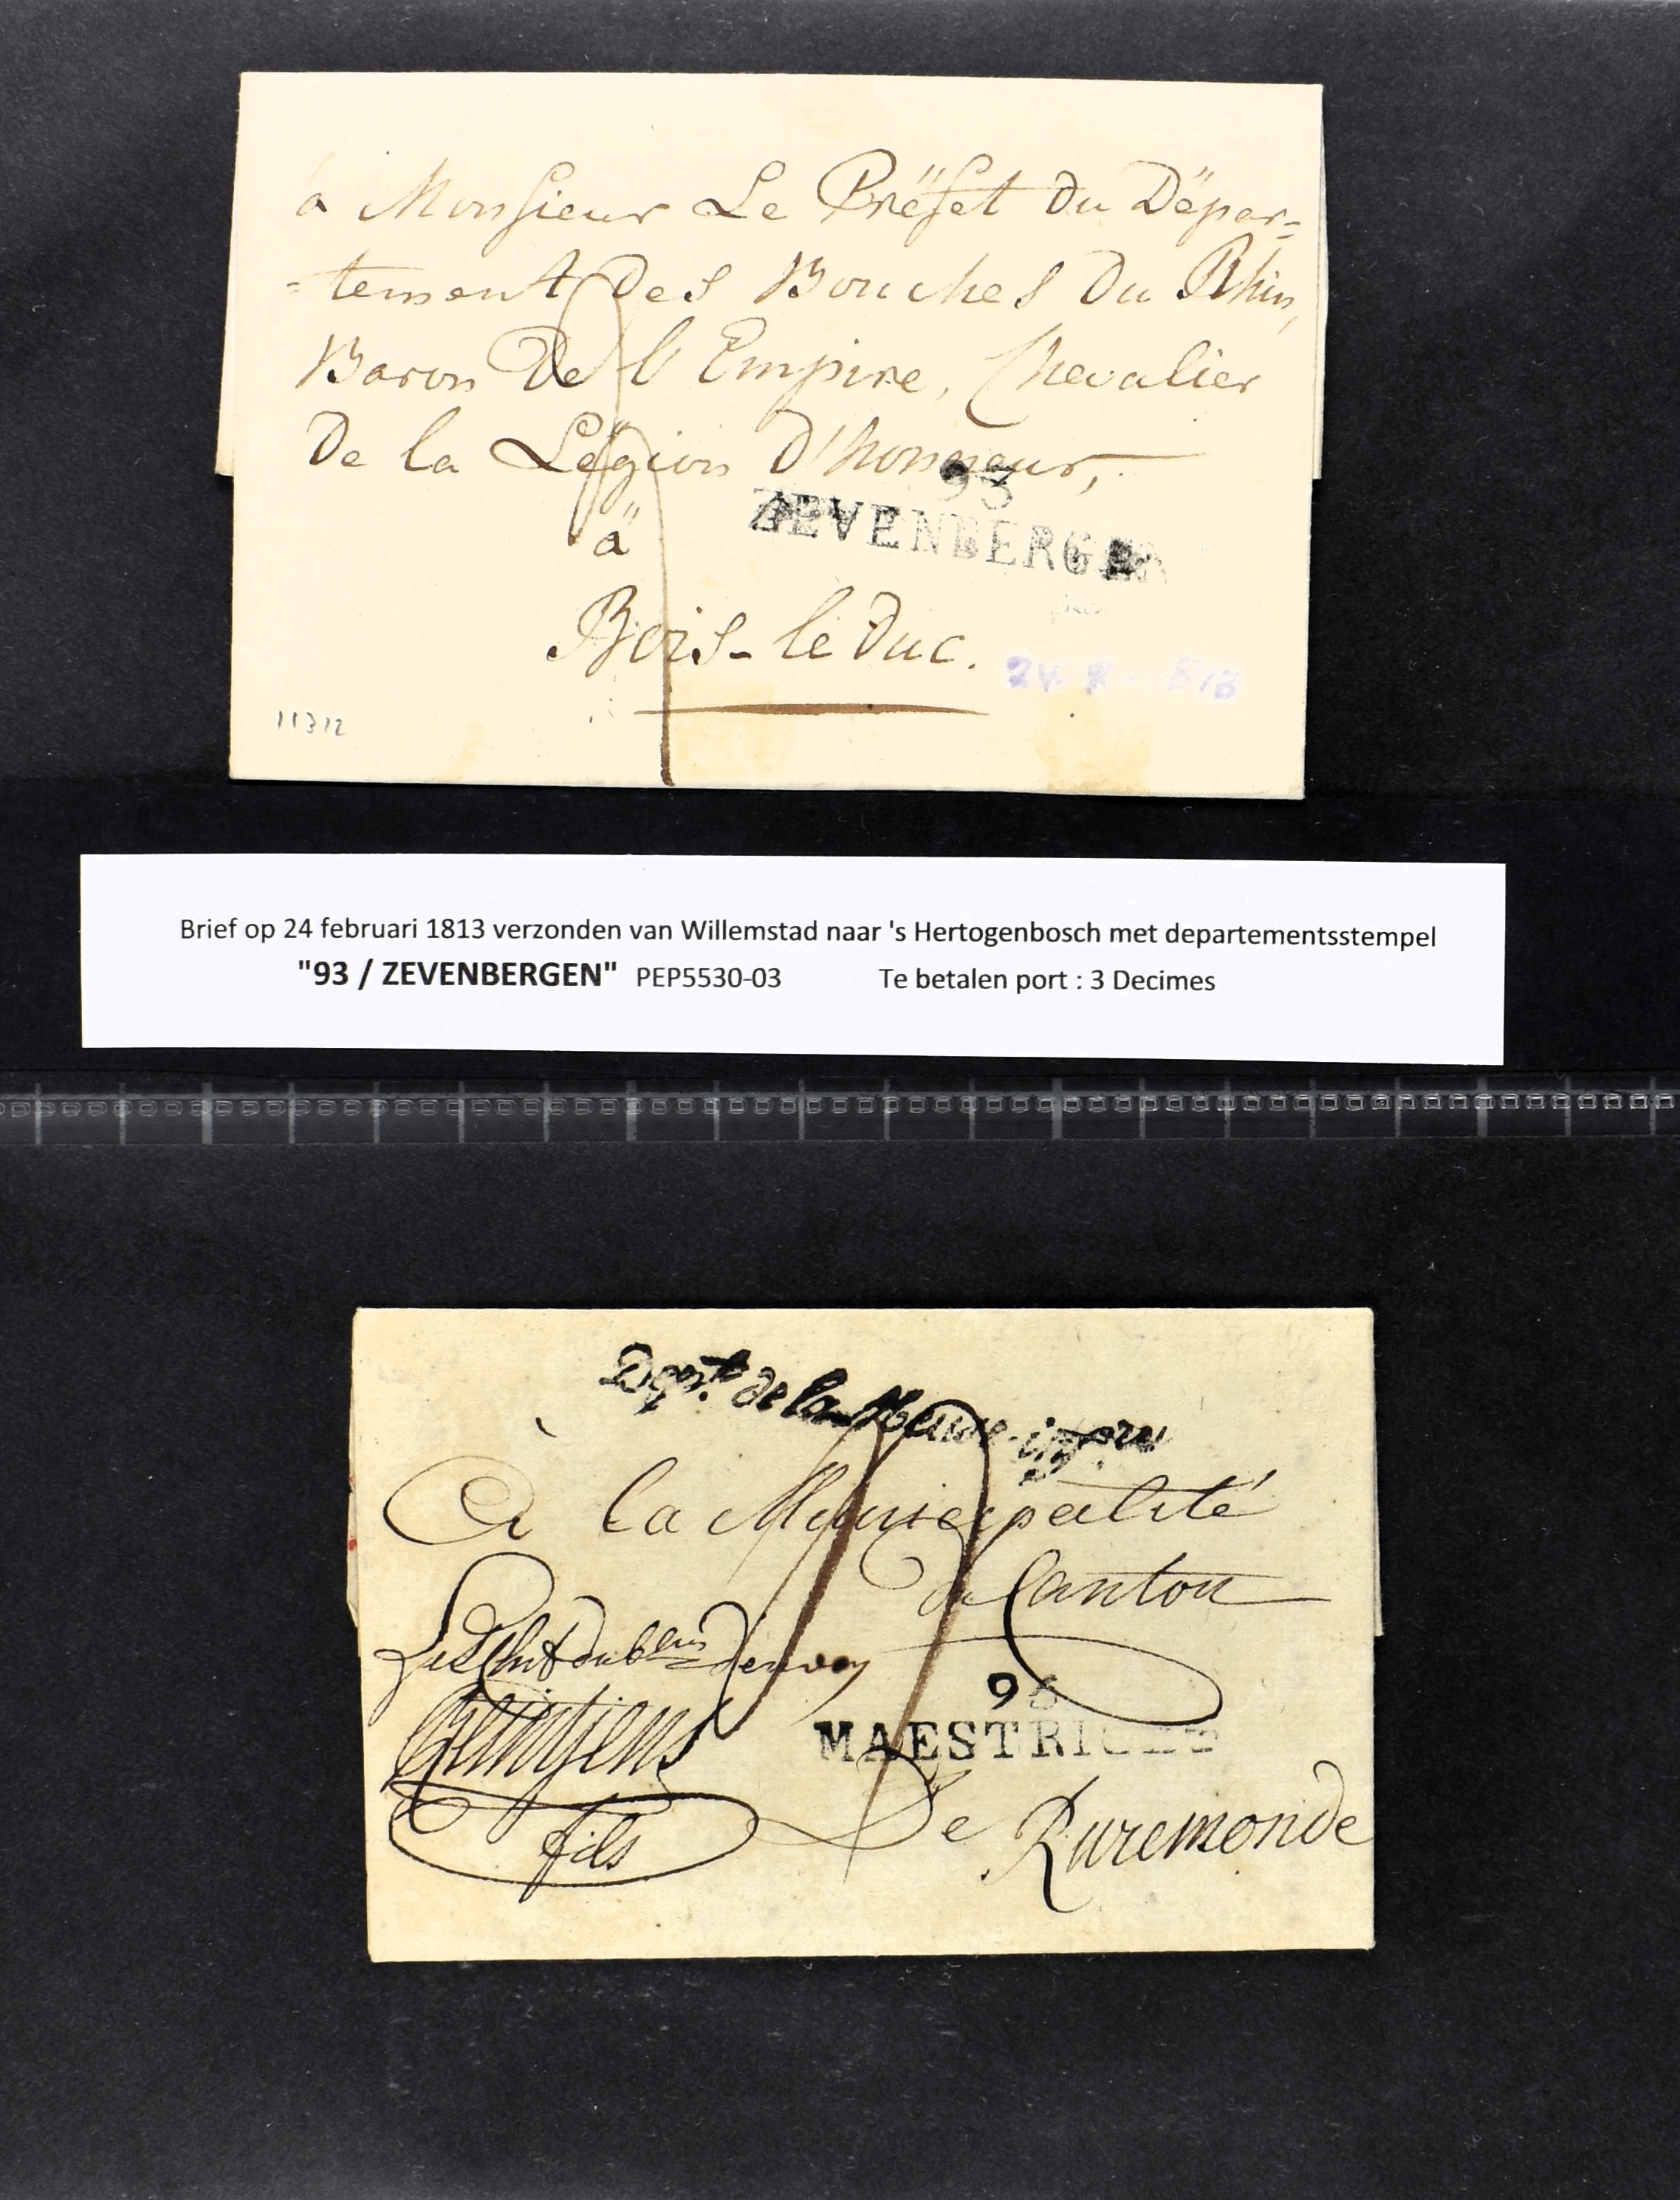 à Monsieur Le Prëfet du Dëpar=
=tement des Bouches du Rhin,
Baron De l'Empire, Chevalier
De la Lëgion d'honneur,
93
ZEVENBERGEN
ä
Bois-le Duc.
11312
Brief op 24 februari 1813 verzonden van Willemstad naar 's Hertogenbosch met departementsstempel
"93 / ZEVENBERGEN" PEP5530-03 Te betalen port : 3 Decimes
Dépt. de la Meuse-infre
À la Municipalité
du Canton
96
MAESTRICHT
fils
De Ruremonde